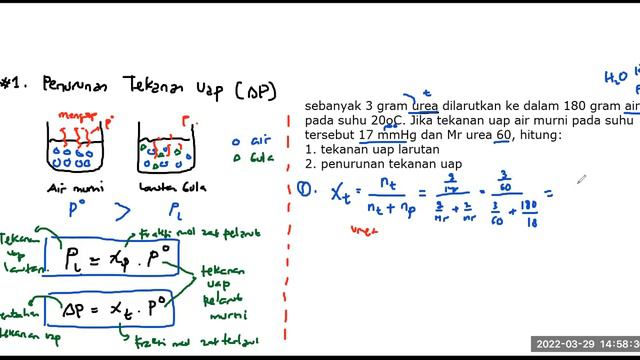 #1. Penurunan Tekanan Uap (ΔP)
menguap P°
P.
o air
o Gula
Air murni
Larutan Gula
P° > PL
Tekanan uap larutan
fraksi mol zat pelarut
PL = Xp . P°
tekanan uap pelarut murni
ΔP = Xt . P°
tekanan uap
fraksi mol zat terlarut
H₂O
t
sebanyak 3 gram urea dilarutkan ke dalam 180 gram air
pada suhu 20oC. Jika tekanan uap air murni pada suhu
tersebut 17 mmHg dan Mr urea 60, hitung:
1. tekanan uap larutan
2. penurunan tekanan uap
①. Xt = nt / (nt + np) = (g/Mr) / (g/Mr + g/Mr) = (3/60) / (3/60 + 180/18) =
urea
2022-03-29 14:58:3